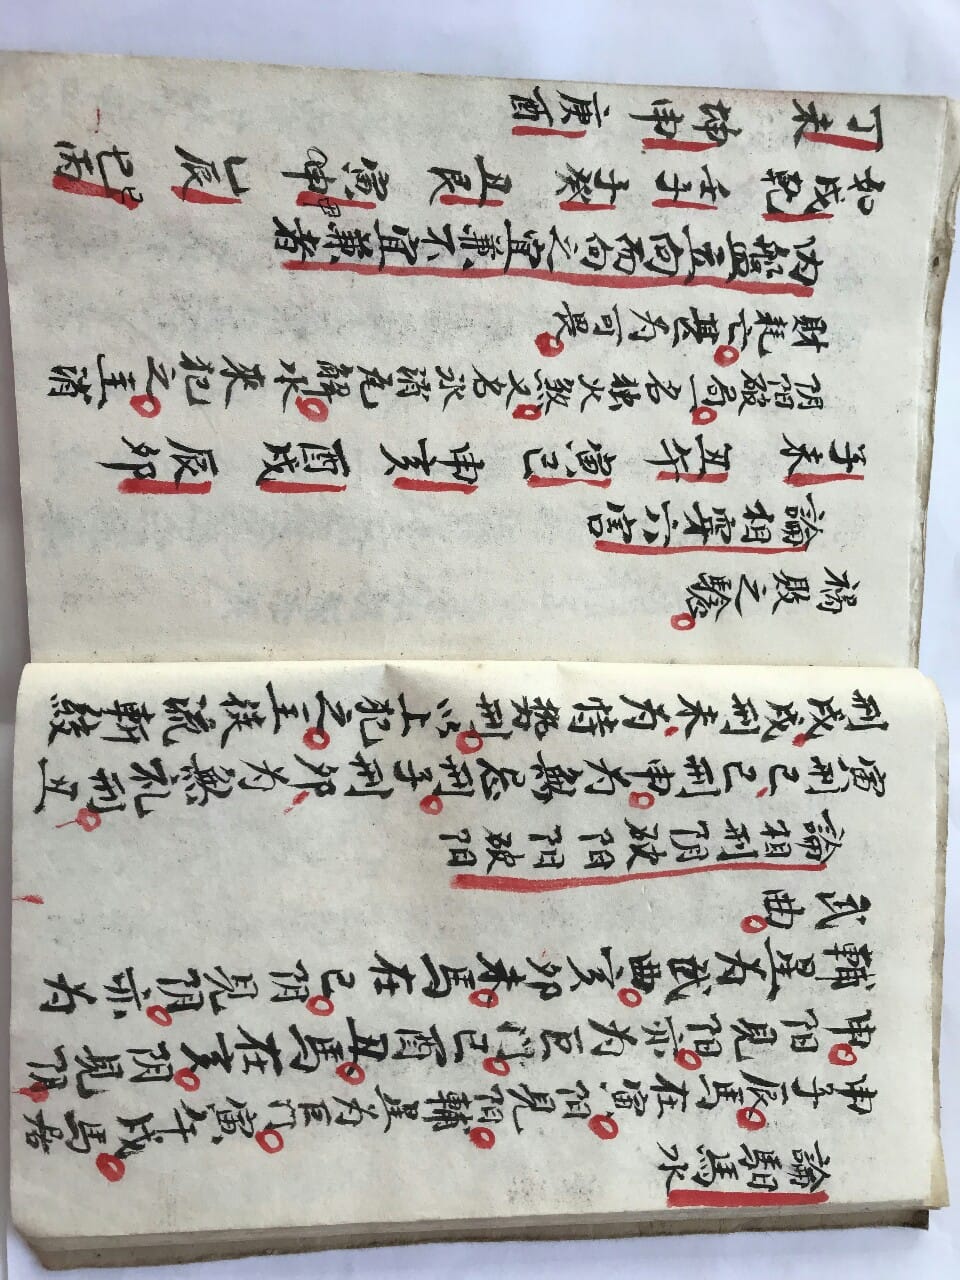 論馹馬水
申子辰。馬在寅。阳見阳。輔星为巨门。寅午戌。馬居
申。阳見阳。亦为巨門。巳酉丑。馬在亥。阴見阴。
輔星为武曲。亥卯未。馬在巳。阴見阴。亦为
武曲。
論相刑阴破阳阳破阳
寅刑巳、巳刑申。为無忌刑。子刑卯、为無礼刑。丑
刑戌、戌刑未、为恃势刑。以上犯之。主徒流斬絞
禍敗之驗。
論相穿六害
子未 丑午 寅巳 申亥 酉戌 辰卯
阴阳破局。一名独火煞。又名氷消瓦解。水來犯之。主消
財耗亡。甚为可畏。
内盤立向而向之宜兼不宜兼者
如戌乾 壬子 子癸 丑艮 寅申甲 乙辰 巳巳丙
丁未 坤申 庚酉